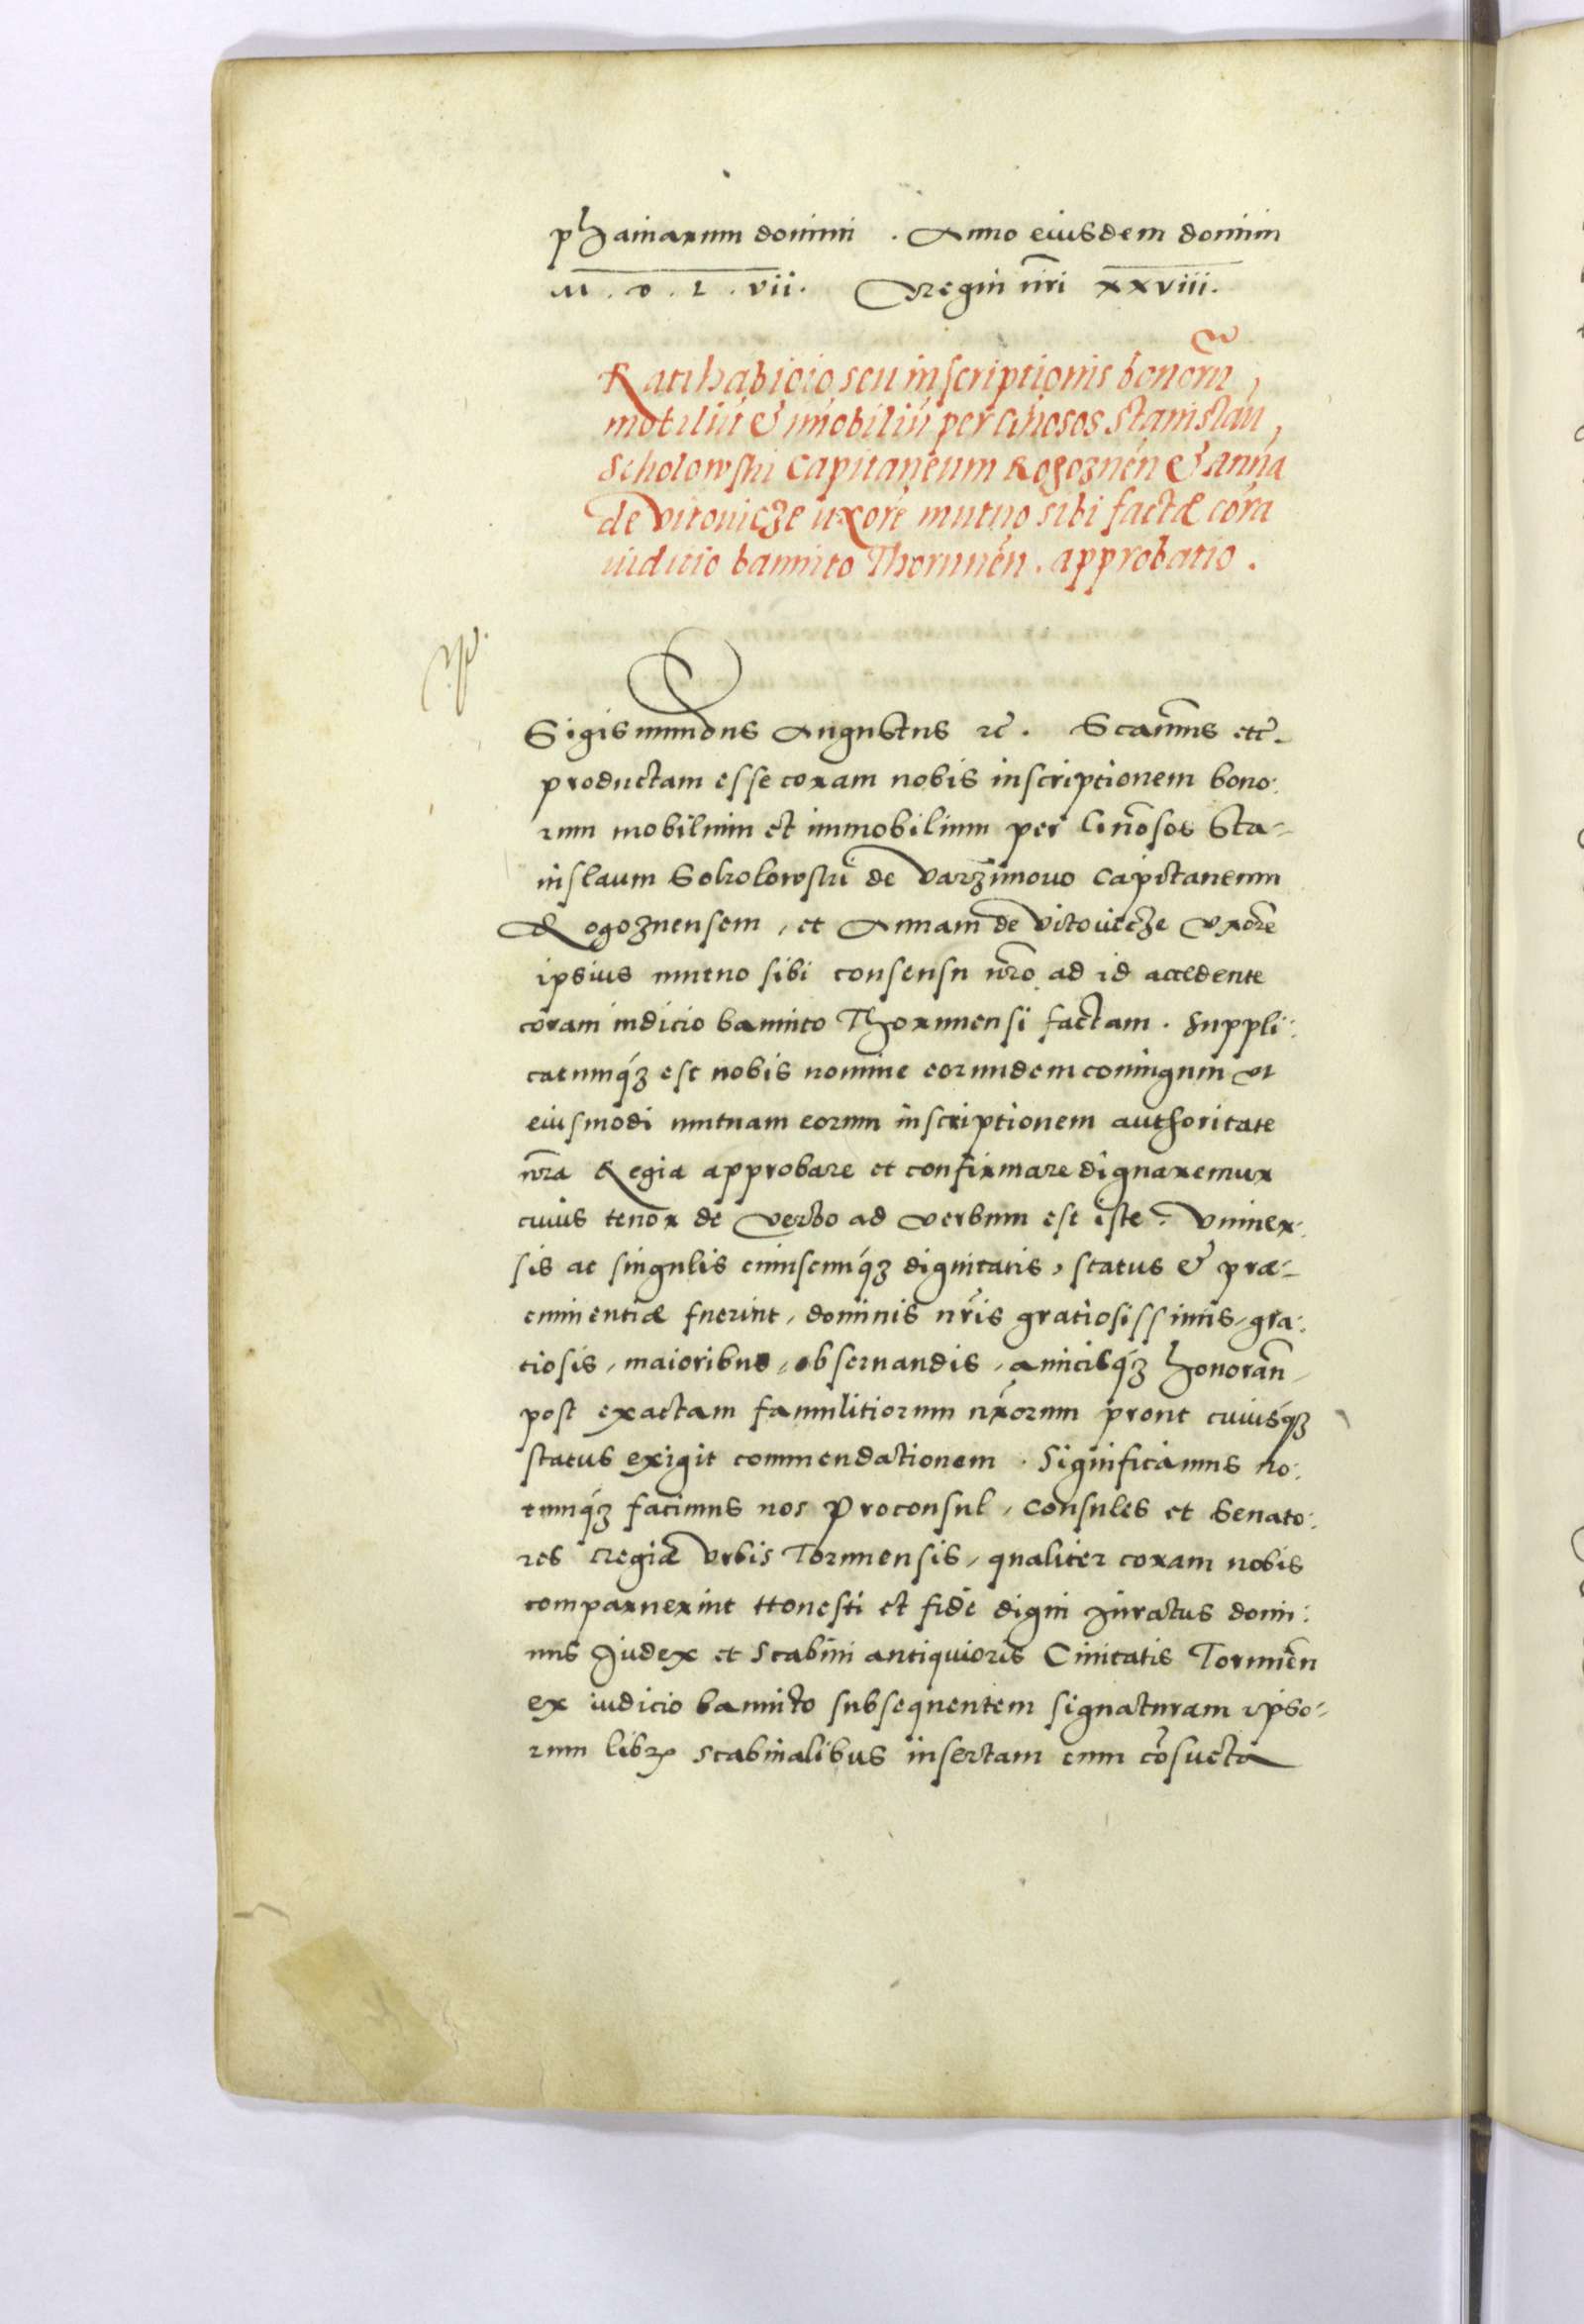 phaniarum domini . Anno eiusdem domini
M . D . L . vii . Regni nr̃i xxviii .
Ratihabicio seu inscriptionis bonorũ,
mobiliũ & im̃obiliũ per Gñosos Stanislaũ,
Scholowski Capitaneum Rogoznen̄ & Annã
de Vitovicze uxorẽ mutuo sibi factæ corã
iudicio bannito Thorunen̄ . approbatio .
Sigismundus Augustus ⁊c̃ . Scimus etc̃ .
productam esse coram nobis inscriptionem bono:
rum mobilium et immobilium per Gñosos Sta-
nislaum Sokolowski de Varzimovo Capitaneum
Rogoznensem, et Annam de Vitovicze Uxorẽ
ipsius mutuo sibi consensu nr̃o ad id accedente
coram iudicio bannito Thorunensi factam . Suppli:
catumq́ꝫ est nobis nomine eorundem coniugum ut
eiusmodi mutuam eorum inscriptionem authoritate
nr̃a Regia approbare et confirmare dignaremur
cuius tenor de verbo ad verbum est iste . Univer:
sis ac singulis cuiuscunq́ꝫ dignitatis, status & præ-
eminentiæ fuerint, dominis nr̃is gratiosissimis, gra:
tiosis, maioribus, observandis, amicisq́ꝫ honoran̄
post exactam famulitiorum nr̃orum prout cuiusq́ꝫ
status exigit commendationem . Significamus no:
tumq́ꝫ facimus nos Proconsul, Consules et Senato:
res regiæ Urbis Torunensis, qualiter coram nobis
comparuerint Honesti et fide digni Juratus domi:
nus Judex et Scabini antiquioris Civitatis Torunen̄
ex iudicio bannito subsequentem signaturam ipso-
rum libꝝ scabinalibus insertam cum cõsueta